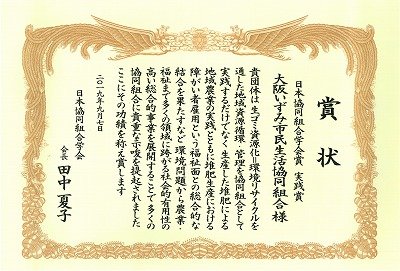 賞状
日本協同組合学会賞 実践賞
大阪いずみ市民生活協同組合様
貴団体は生ゴミ資源化＝環境リサイクルを
通した地域資源循環・管理を協同組合として
実践するだけでなく生産した堆肥による
地域農業の実践とともに堆肥生産における
障がい者雇用という福祉面との総合的な
結合を果たすなど環境問題から農業・
福祉まで多くの領域に跨がる社会的有用性の
高い総合的事業を展開することで多くの
協同組合に貴重な示唆を提起されました
ここにその功績を称え賞します
二〇一九年九月七日
日本協同組合学会
会長 田中夏子